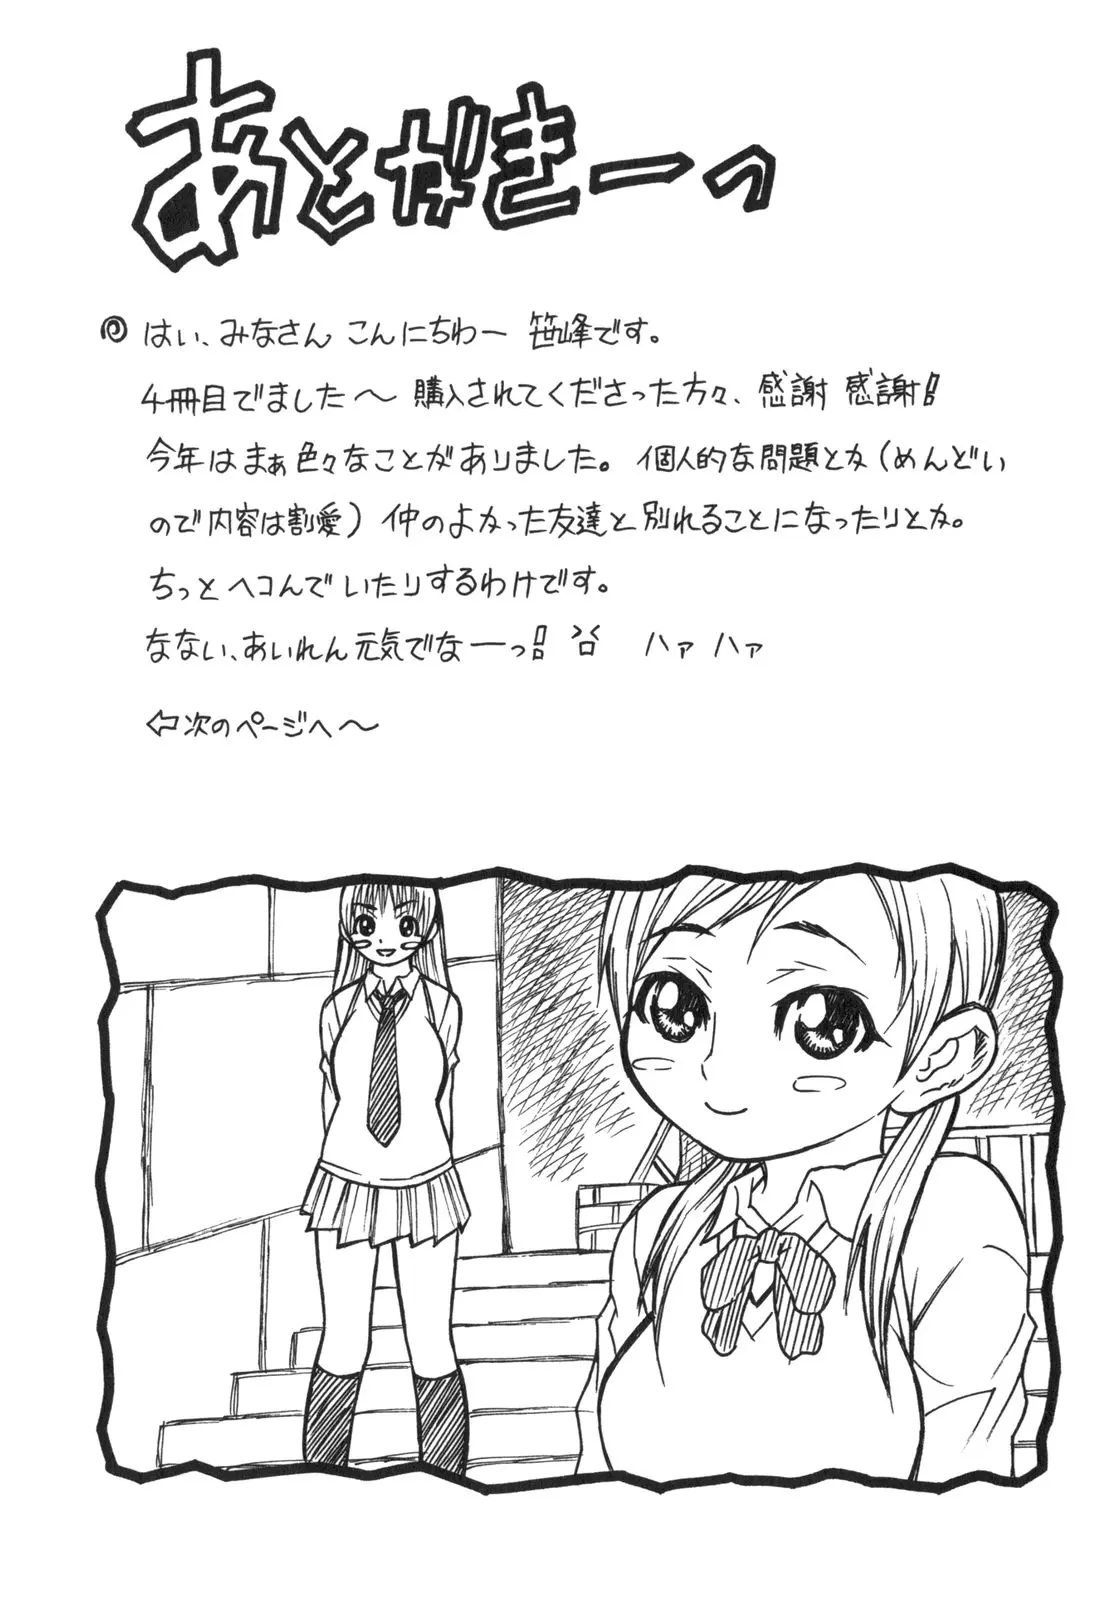 あとがきーっ
はい、みなさん こんにちわー 笹峰です。
4冊目でました〜 購入されてくださった方々、感謝 感謝!!
今年はまぁ色々なことがありました。個人的な問題とか(めんどい
ので内容は割愛) 仲のよかった友達と別れることになったりとか。
ちっとヘコんでいたりするわけです。
なない、あいれん元気でなーっ!! ハァ ハァ
⇦次のページへ〜